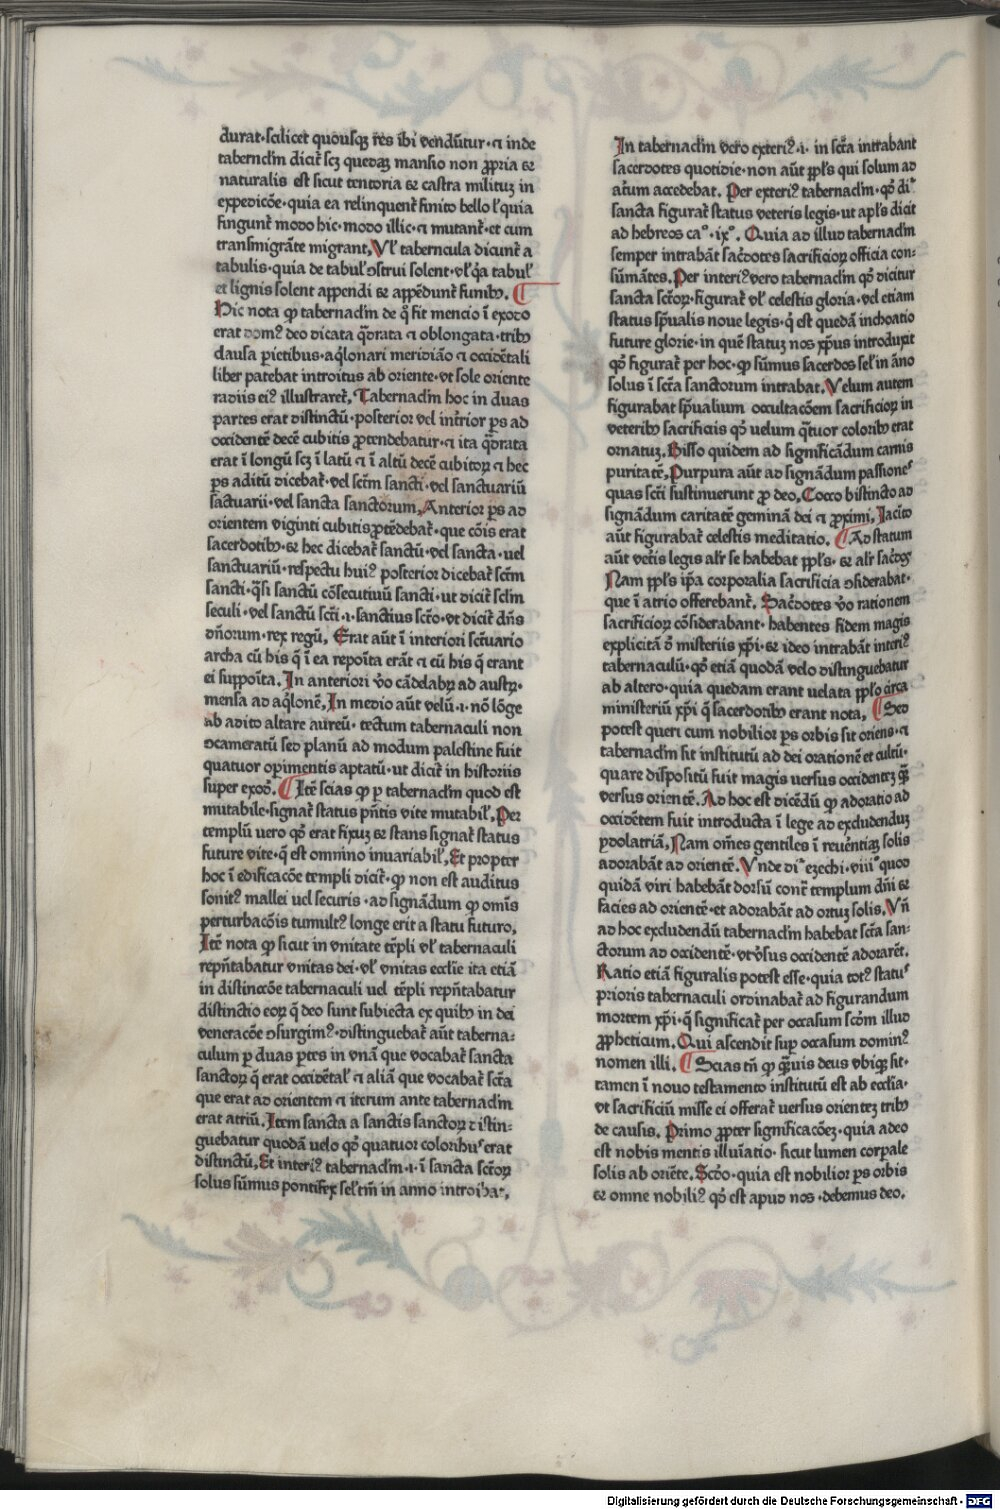 durat·scilicet quousqꝫ res ibi vendūtur·⁊ inde
tabernclm̄ dicit̄ scꝫ quedaꝫ mansio non ꝓpria ⁊
naturalis est sicut tentoria ⁊ castra milituꝫ in
expedicōe·quia ea relinquent̄ finito bello ł quia
fingunt̄ modo hic·modo illic·⁊ mutant̄·et cum
transmigrāte migrant, Vł tabernacula dicunt̄ a
tabulis·quia de tabuł ↄstrui solent·vł q̄a tabuł
et lignis solent appendi ⁊ appēdunt̄ funibꝫ. ¶
Hic nota ꝙ tabernaclm̄ de q̄ fit mencio ī exodo
erat domꝰ deo dicata q̄drata ⁊ oblongata·tribꝫ
clausa pietibus·aq̄lonari meridiāo ⁊ occidētali
liber patebat introitus ab oriente·vt sole oriente
radiis eiꝰ illustraret̄, Tabernaclm̄ hoc in duas
partes erat distinctū·posterior vel int̄rior ꝑs ad
occidentē decē cubitis ꝓtendebatur·⁊ ita q̄drata
erat ī longū scꝫ ī latū ⁊ ī altū decē cubitoꝝ ⁊ hec
ꝑs aditū dicebat̄·vel sctm̄ sancti·vel sanctuariū
sāctuarii·vel sancta sanctorum, Anterior ꝑs ad
orientem viginti cubitis ꝓtēdebat̄·que cōis erat
sacerdotibꝫ·⁊ hec dicebat̄ sanctū·vel sancta·uel
sanctuariū·respectu huiꝰ posterior dicebat̄ sctm̄
sancti·q̄si sanctū cōsecutiuū sancti·ut dicit̄ sclm̄
seculi·vel sanctū scti·ı·sanctius scto·vt dicit̄ dn̄s
dn̄orum·rex regū, Erat aūt ī interiori sctuario
archa cū his q̄ ī ea repoīta erāt ⁊ cū his q̄ erant
ei supposita. In anteriori v̊o cādelabꝝ ad austꝝ·
mensa ad aq̄lonē, In medio aūt velū·ı·nō lōge
ab adito altare aureū·tectum tabernaculi non
ↄcameratū sed planū ad modum palestine fuit
quatuor opimentis aptatū·ut dicit̄ in historiis
super exod̄. ¶ Itē scias ꝙ ꝑ tabernaclm̄ quod est
mutabile·signat̄ status pn̄tis vite mutabiłi, Per
templū uero qd̊ erat fixuꝫ ⁊ stans signat̄ status
future vite·q̄ est omnino inuariabił, Et propter
hoc ī edificacōe templi dicit̄·ꝙ non est auditus
sonitꝰ mallei uel securis·ad signādum ꝙ om̄is
perturbacōis tumultꝰ longe erit a statu futuro,
Itē nota ꝙ sicut in vnitate tēpli vł tabernaculi
repn̄tabatur vnitas dei·vł vnitas ecclīe ita etiā
in distinccōe tabernaculi uel tēpli repn̄tabatur
distinctio eoꝝ q̄ deo sunt subiecta ex quibꝫ in dei
veneracōe ↄsurgimꝰ·distinguebat̄ aūt taberna-
culum ꝑ duas ꝑtes in vnā que vocabat̄ sancta
sanctoꝝ q̄ erat occidētał ⁊ aliā que vocabat̄ scta
que erat ad orientem ⁊ iterum ante tabernaclm̄
erat atriū. Item sancta a sanctis sanctoꝝ distin-
guebatur quodā uelo qd̊ quatuor coloribus erat
distinctū, Et interiꝰ tabernaclm̄·ı·ī sancta sctoꝝ
solus sūmus pontifex seł tm̄ in anno introibat,
In tabernaclm̄ vero exteriꝰ·ı·in scta intrabant
sacerdotes quotidie·non aūt ppłs qui solum ad
atīum accedebat. Per exteriꝰ tabernaclm̄·qd̊ di
sancta figurat̄ status veteris legis·ut apłs dicit
ad hebreos caº·ixº. Quia ad illud tabernaclm̄
semper intrabāt sac̄dotes sacrificioꝝ officia con-
sūmātes. Per interiꝰ vero tabernaclm̄ qd̊ dicitur
sancta sctoꝝ·figurat̄ vł celestis gloria·vel etiam
status sp̄ualis noue legis·q̄ est quedā inchoatio
future glorie·in quē statuꝫ nos xp̄us introduxit
qd̊ figurat̄ per hoc·ꝙ sūmus sacerdos seł in āno
solus ī scta sanctorum intrabat. Velum autem
figurabat sp̄ualium occultacōem sacrificioꝝ in
veteribꝫ sacrificiis qd̊ uelum q̄tuor coloribꝫ erat
ornatuꝫ. Bisso quidem ad significādum carnis
puritatē, Purpura aūt ad signādum passiones
quas scti sustinuerunt ꝓ deo, Cocco bistincto ad
signādum caritatē geminā dei ⁊ ꝓximi, Iacīto
aūt figurabat̄ celestis meditatio. ¶ Ad statum
aūt vet̄is legis alr̄ se habebat ppłs·⁊ alr̄ sac̄dos
Nam ppłs ip̄a corporalia sacrificia ↄsiderabat·
que ī atrio offerebant̄. Sac̄dotes v̊o rationem
sacrificioꝝ cōsiderabant·habentes fidem magis
explicitā d̄ misteriis xp̄i·⁊ ideo intrabāt interiꝰ
tabernaculū·qd̊ etiā quodā velo distinguebatur
ab altero·quia quedam erant uelata ppło circa
ministeriū xp̄i q̄ sacerdotibꝫ erant nota, ¶ Sed
potest queri cum nobilior ꝑs orbis sit oriens·⁊
tabernaclm̄ sit institutū ad dei orationē et cultū·
quare dispositū fuit magis uersus occidenteꝫ q̄ꝫ
versus orientē. Ad hoc est dicēdū ꝙ adoratio ad
occidētem fuit introducta ī lege ad excludenduꝫ
ydolatriā, Nam om̄es gentiles ī reuēntiaꝫ solis
adorabāt ad orientē. Vnde diº ezechi·viiiº quod
quidā viri habebāt dorsū cont̄ templum dn̄i ⁊
facies ad orientē·et adorabāt ad ortuꝫ solis. Vn̄
ad hoc excludendū tabernaclm̄ habebat scta san-
ctorum ad occidentē·vt v̄sus occidentē adoraret̄.
Ratio etiā figuralis potest esse·quia totꝰ status
prioris tabernaculi ordinabat̄ ad figurandum
mortem xp̄i·q̄ significat̄ per occasum scdm̄ illud
ꝓpheticum. Qui ascendit suꝑ occasum dominꝰ
nomen illi. ¶ Scias tn̄ ꝙ q̄ꝫuis deus vbiqꝫ sit·
tamen ī nouo testamento institutū est ab ecclīa·
vt sacrificiū misse ei offerat̄ uersus orienteꝫ tribꝫ
de causis. Primo ꝓpter significacōeꝫ·quia a deo
est nobis mentis illuīatio·sicut lumen corꝑale
solis ab oriēte. Scdo·quia est nobilior ꝑs orbis
⁊ omne nobiliꝰ qd̊ est apud nos·debemus deo.
Digitalisierung gefördert durch die Deutsche Forschungsgemeinschaft - DFG